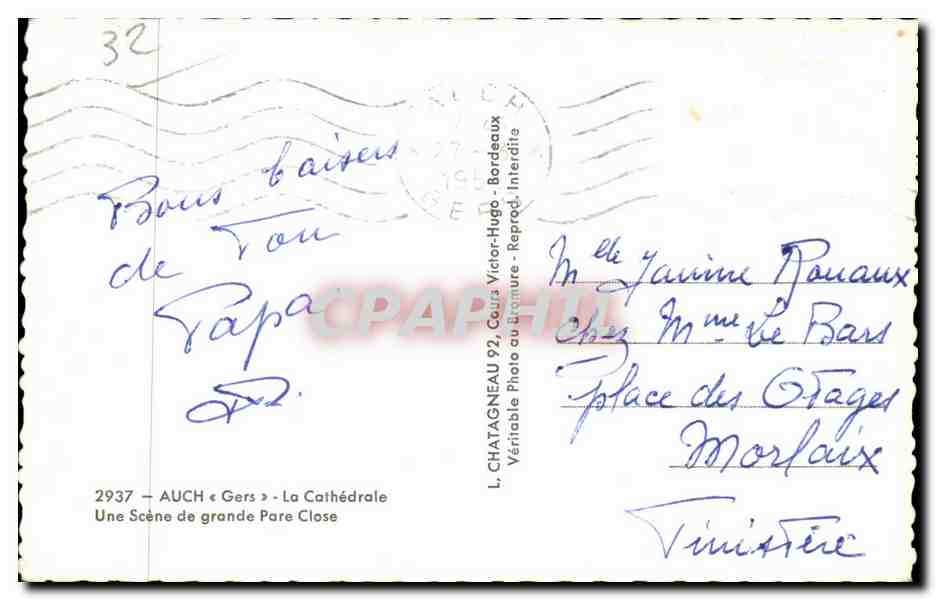 32
AUCH
GERS
Bons baisers
de Ton
Papa
2937 — AUCH « Gers » - La Cathédrale
Une Scène de grande Pare Close
L. CHATAGNEAU 92, Cours Victor-Hugo - Bordeaux
Véritable Photo au Bromure - Reprod. Interdite
CPAPHIL
Mlle Janine Rouaux
chez Mme Le Bars
place des Otages
Morlaix
Finistère